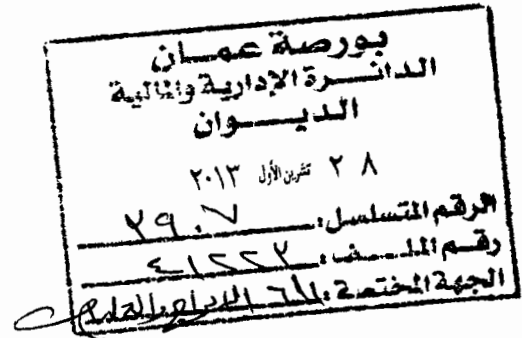 بورصة عمان
الدائرة الإدارية والمالية
الديوان
٢٨ تشرين الأول ٢٠١٣
الرقم المتسلسل: ٢٩٠٧
رقم الملف: ٤١٢٢٢
الجهة المختصة: الإدراج